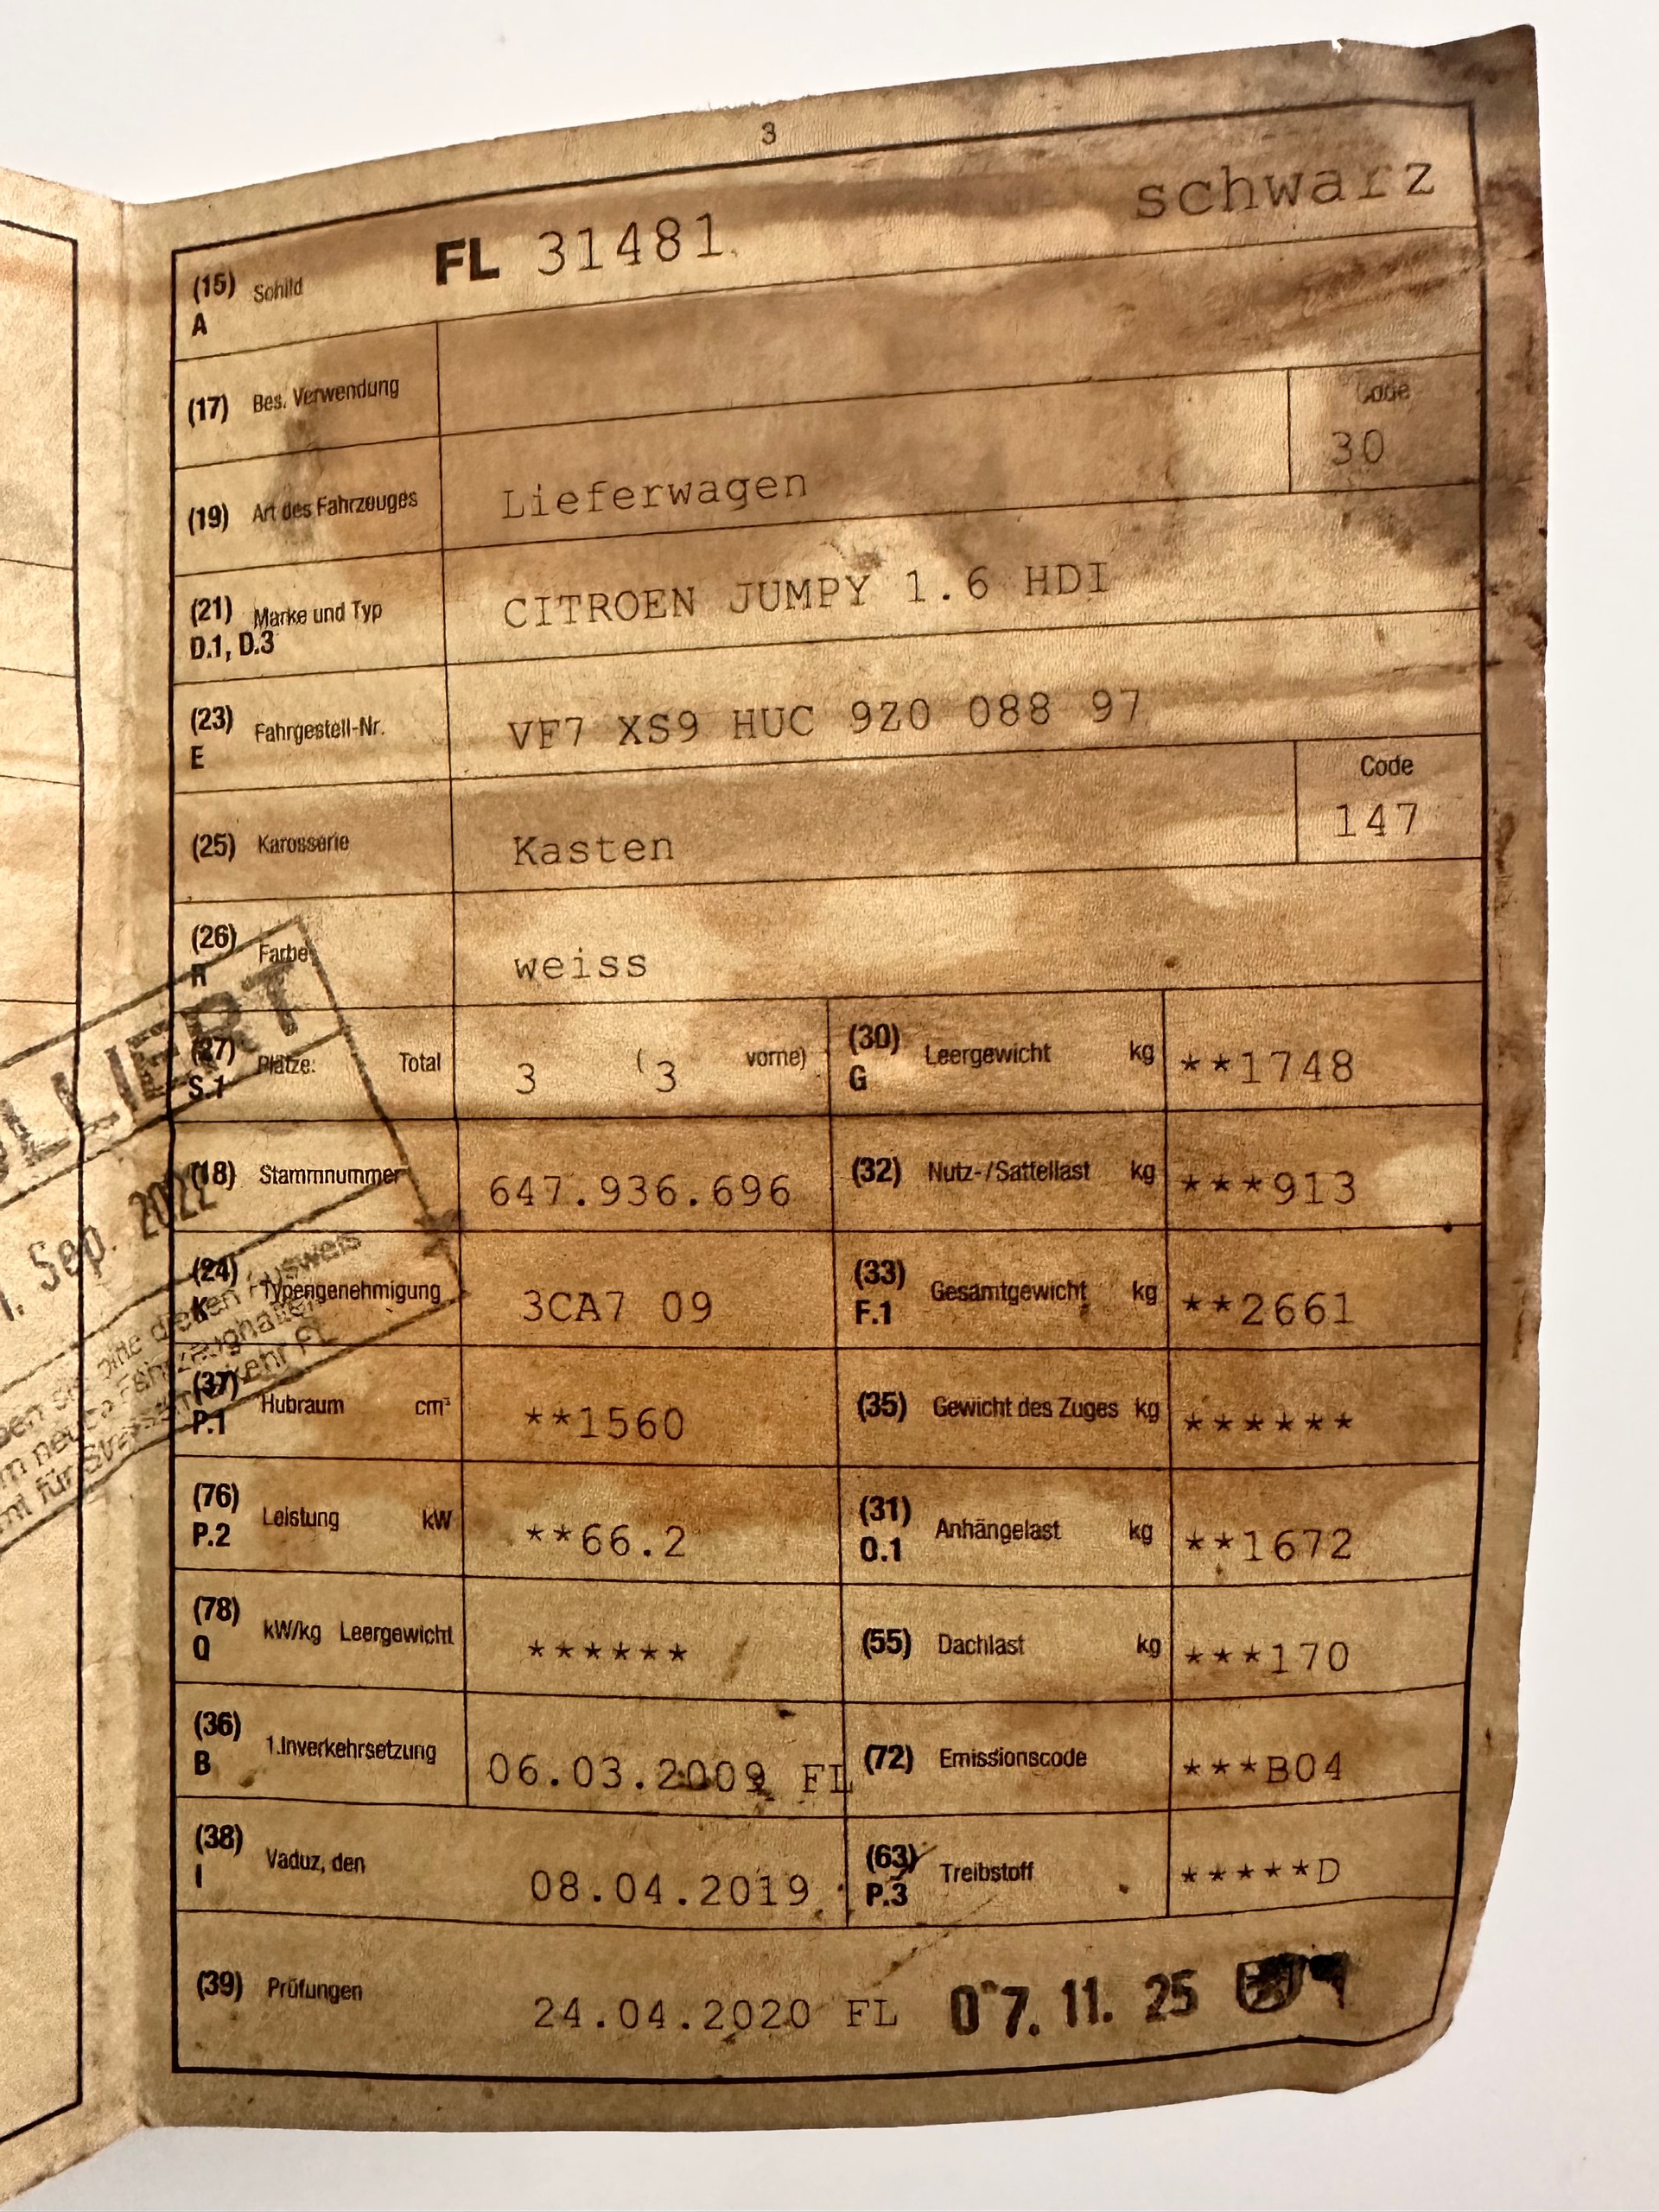 3
(15) A Schild FL 31481 schwarz
(17) Bes. Verwendung
Code
(19) Art des Fahrzeuges Lieferwagen 30
(21) D.1, D.3 Marke und Typ CITROEN JUMPY 1.6 HDI
(23) E Fahrgestell-Nr. VF7 XS9 HUC 9Z0 088 97
Code
(25) Karosserie Kasten 147
(26) R Farbe weiss
(27) S.1 Plätze: Total 3 (3 vorne) (30) G Leergewicht kg **1748
(18) Stammnummer 647.936.696 (32) Nutz-/Sattellast kg ***913
(24) K Typengenehmigung 3CA7 09 (33) F.1 Gesamtgewicht kg **2661
(37) P.1 Hubraum cm³ **1560 (35) Gewicht des Zuges kg ******
(76) P.2 Leistung kW **66.2 (31) O.1 Anhängelast kg **1672
(78) Q kW/kg Leergewicht ****** (55) Dachlast kg ***170
(36) B 1.Inverkehrsetzung 06.03.2009 FL (72) Emissionscode ***B04
(38) I Vaduz, den 08.04.2019 (63) P.3 Treibstoff *****D
(39) Prüfungen 24.04.2020 FL 07. 11. 25
LLIERT
1. Sep. 2022
diesen Ausweis
Fahrzeughalter
für Strassenverkehr FL